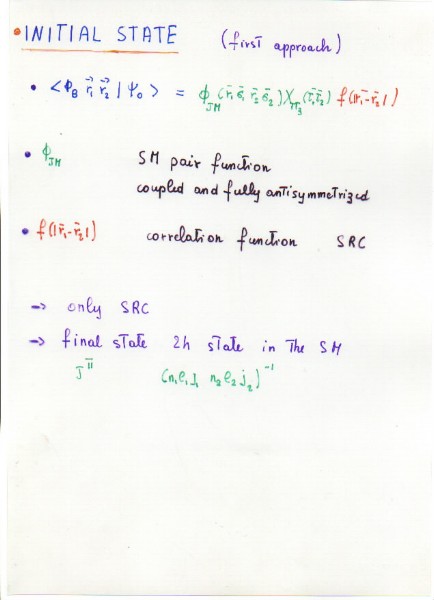 • INITIAL STATE (first approach)
• <Φ_B r⃗₁ r⃗₂ | Ψ₀> = ϕ_JM (r̄₁ σ̄₁ r̄₂ σ̄₂) χ_TT₃ (τ̄₁ τ̄₂) f(|r̄₁-r̄₂|)
• ϕ_JM SM pair function
coupled and fully antisymmetrized
• f(|r̄₁-r̄₂|) correlation function SRC
→ only SRC
→ final state 2h state in the SM
J^π (n₁ℓ₁j₁ n₂ℓ₂j₂)⁻¹